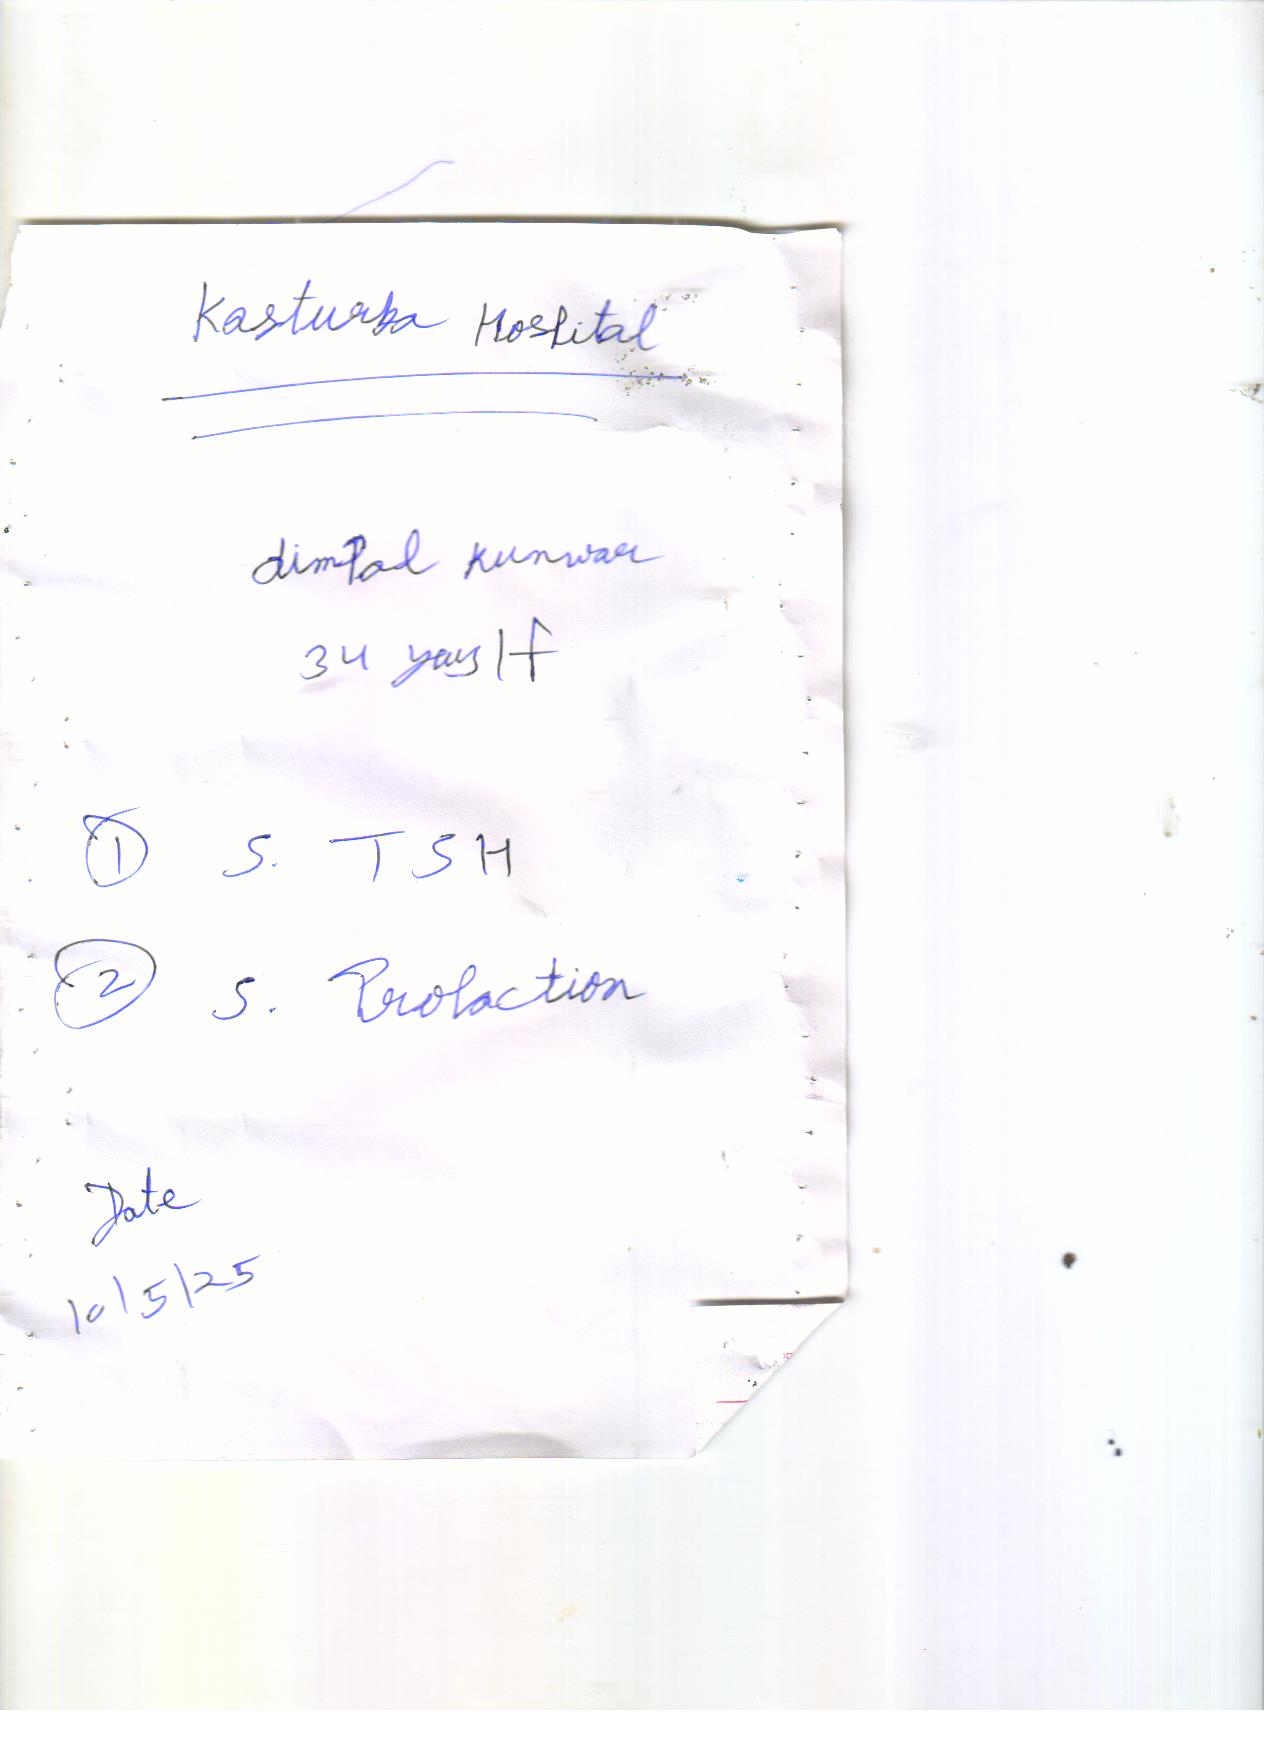 Kasturba Hospital
dimpal kunwar
34 yays/f
① S. TSH
② S. Prolaction
Date
10/5/25